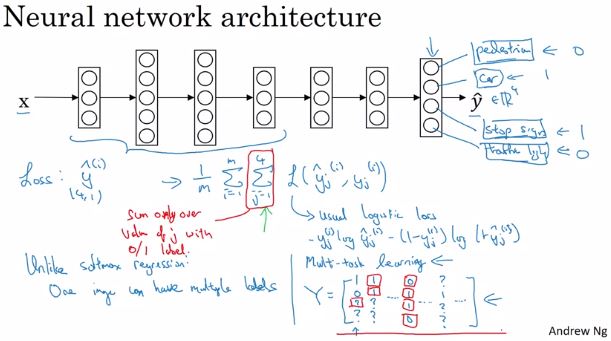 Neural network architecture
pedestrian ← 0
car ← 1
x
ŷ ∈ ℝ⁴
stop sign ← 1
traffic light ← 0
Loss: ŷ^(i) → 1/m Σ_{i=1}^{m} Σ_{j=1}^{4} L(ŷ_j^(i), y_j^(i))
(4,1)
Sum only over
value of j with
0/1 label.
usual logistic loss
- y_j^(i) log ŷ_j^(i) - (1-y_j^(i)) log (1-ŷ_j^(i))
Unlike softmax regression:
One image can have multiple labels
Multi-task learning ←
Y = [ 1 1 0 ?
0 1 ... 1 ... ? ...
? ? 1 ?
? ? 0 ? ] ←
Andrew Ng